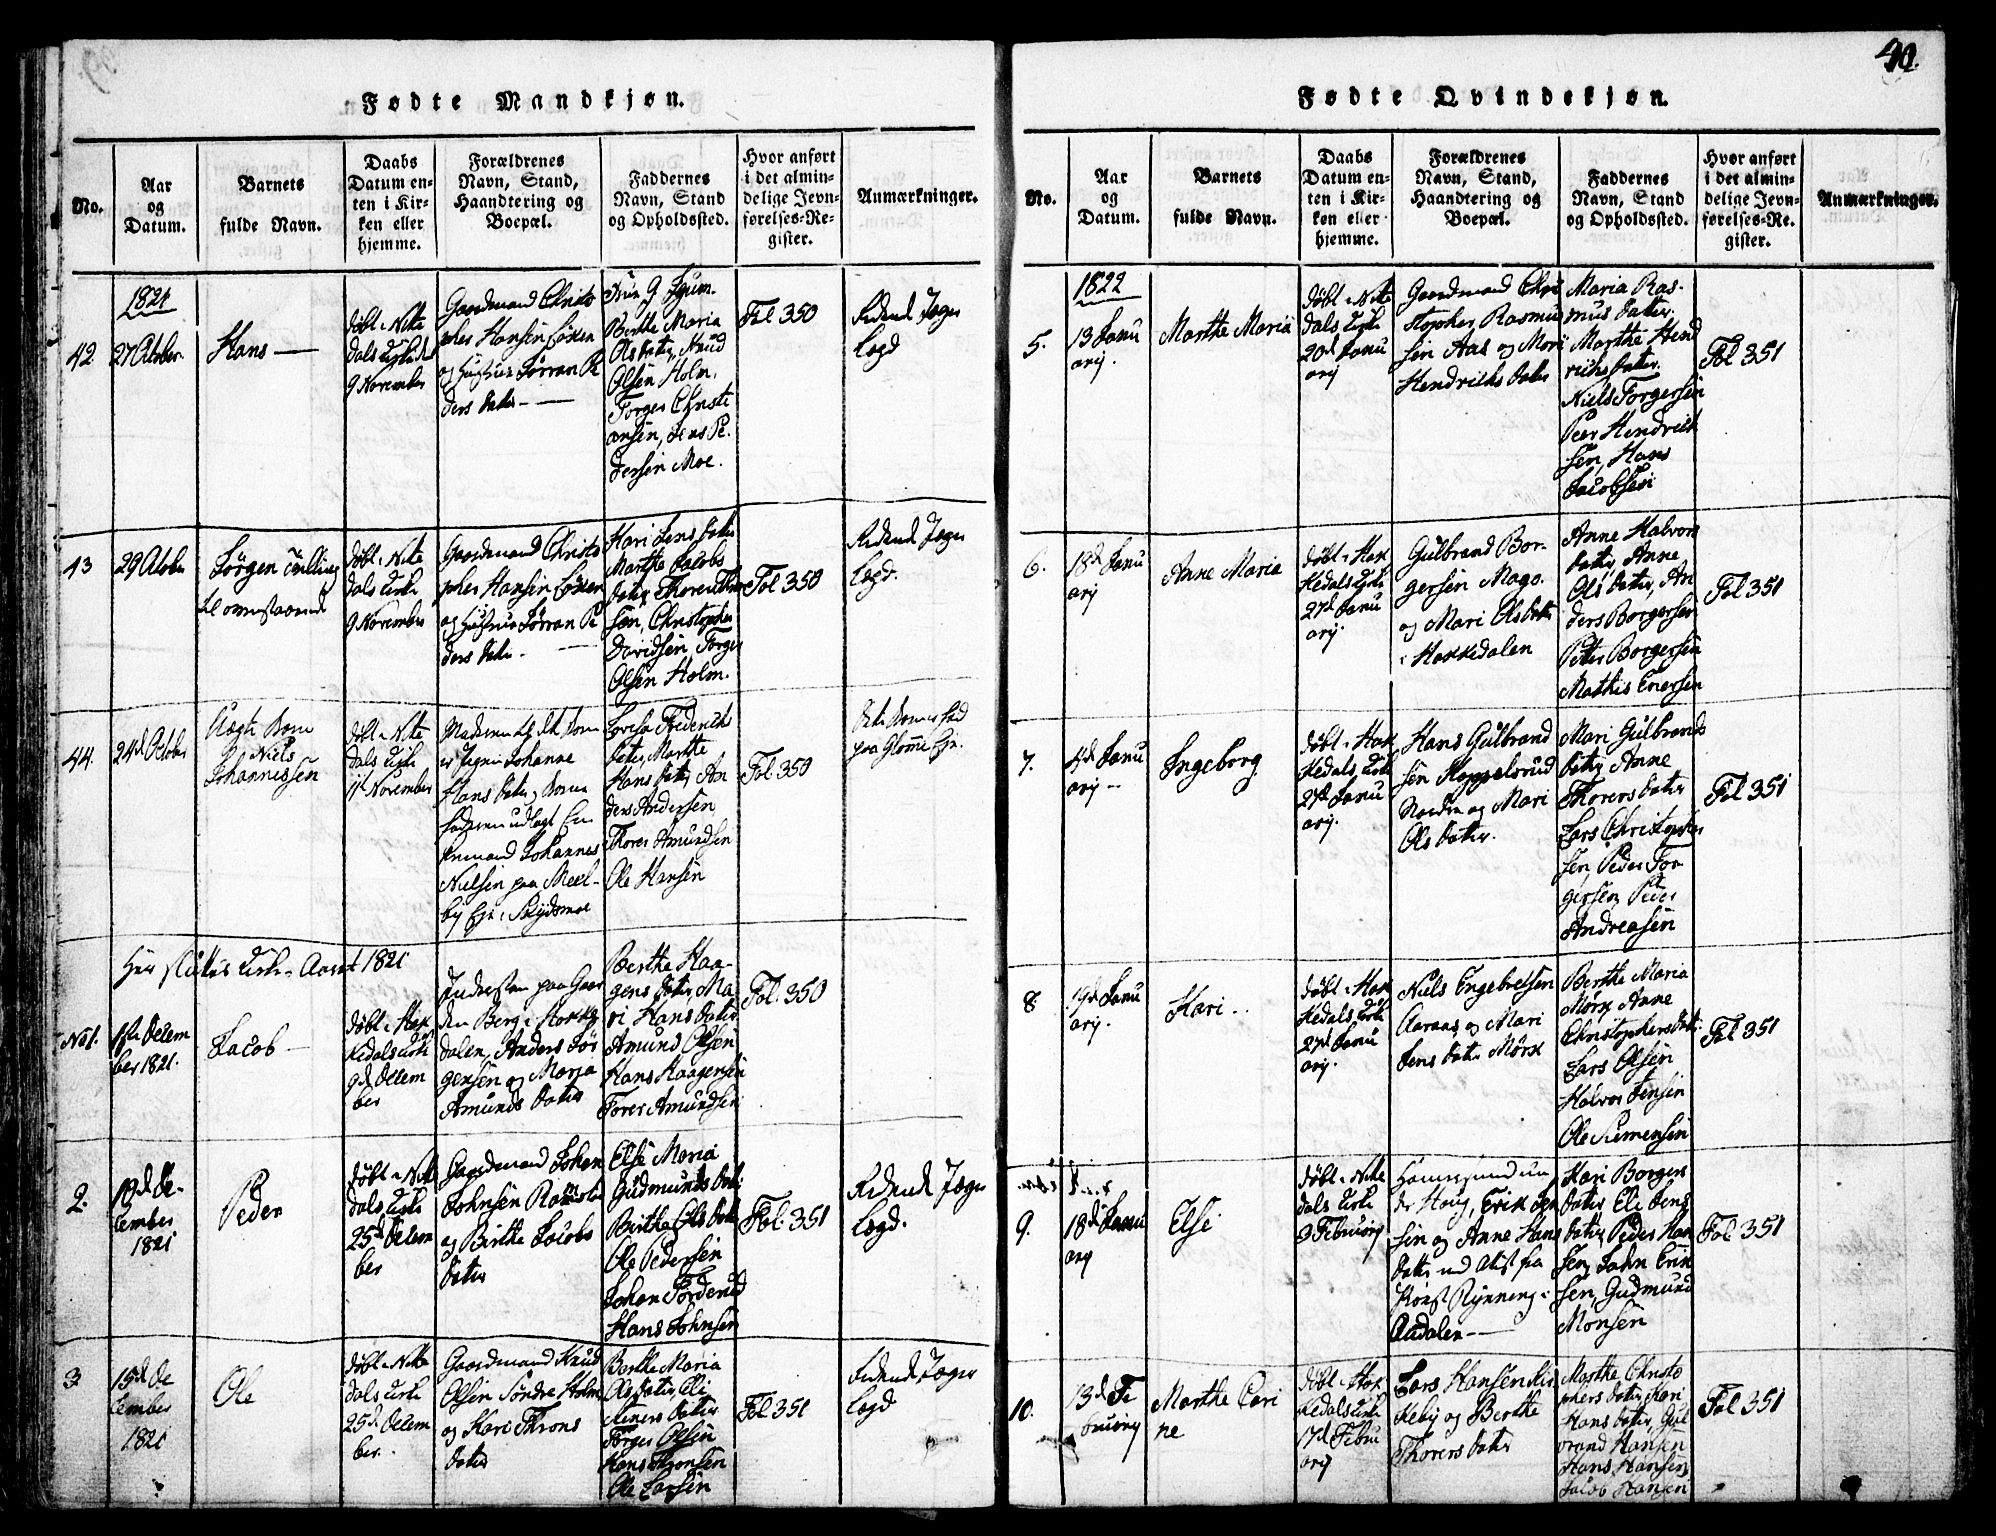 40.
Fødte Mandkjøn.
No.
Aar
og
Datum.
Barnets
fulde Navn.
Daabs
Datum en-
ten i Kir-
ken eller
hjemme.
Forældrenes
Navn, Stand,
Haandtering og
Boepæl.
Faddernes
Navn, Stand
og Opholdssted.
Hvor anført
i det almin-
delige Jevn-
førelses-Re-
gister.
Anmærkninger.
42
1821
27 October
Hans
døbt i Nite
dals Kirke d
9 November
Gaardmand Christo
pher Hansen
og Hustrue Jørran Pe
ders datter
Berthe Maria
Olsdatter, Knud
Olsen Holm,
Torger Christi
ansen, Jens Pe
dersen Moe.
Fol 350
Ridende Jæger
Lægd
43
29 October
Jørgen Tvilling
til ovenstaaende
døbt i Nite
dals Kirke
9 November
Gaardmand Christo
pher Hansen
og Hustrue Jørran Pe
ders datter
Kari Jens datter
Marthe Jacobs
datter,
Christopher
Davidsen, Torger
Olsen Holm.
Fol 350
Ridende Jæger
Lægd.
44.
24d October
Uægte Barn
Niels
Johannessen
døbt i Nite
dals Kirke
11t November
Moderen til dette Barn
er Pigen Johanne
Hans datter, Barne
faderen udlagt
Johannes
Nielsen paa Meel-
by Eje i Skydsmoe
Lovisa Frederichs
datter, Marthe
Hans datter, An
ders Andersen,
Thorer Amundsen
Ole Hansen
Fol 350
paa Glomme Eje.
Her sluttes Kirke-Aaret 1821
No 1.
1ste Decem
ber 1821.
Jacob
døbt i Hak
kedals Kirke
9d Decem
ber
Inderster paa Gaar
den Berg i Hakke
dalen, Anders Jør
gensen og Marja
Amunds datter
Berthe Haa-
gens datter, Ma
ri Hans datter
Amund Olsen
Hans Haagensen
Torer Amundsen
Fol. 350
2.
19d De-
cember
1821
Peder
døbt i Nite
dals Kirke
25d Decem
ber
Gaardmand Johan
Johnsen
og Birthe Jacobs
datter
Else Maria
Gudmunds datter
Birthe Ols datter
Ole Pedersen
Johan
Hans Johnsen
Fol. 351
Ridende Jæger
Lægd.
3
15d De
cember
1821
Ole
døbt i Nite
dals Kirke
25d Decem
ber.
Gaardmand Knud
Olsen Søndre Holm
og Kari Throns
datter
Berthe Maria
Ols datter, Eli
Steners datter
Torger Olsen
Hans Thronsen
Ole Larsen
Fol 351
Ridende Jæger
Lægd
Fødte Qvindekjøn.
No.
Aar
og
Datum.
Barnets
fulde Navn.
Daabs
Datum en-
ten i Kir-
ken eller
hjemme.
Forældrenes
Navn, Stand,
Haandtering og
Boepæl.
Faddernes
Navn, Stand
og Opholdssted.
Hvor anført
i det almin-
delige Jevn-
førelses-Re-
gister.
Anmærkninger.
5.
1822
13 Janu
arj.
Marthe Maria
døbt i Nite
dals Kirke
20d Janu
arj
Gaardmand Chri
stopher Rasmu
sen Aas og Mari
Hendrichs datter
Maria Ras-
mus datter,
Marthe Hend
richs datter.
Niels Torgersen
Peer Hendrick
sen, Hans
Jacobsen
Fol 351
6.
18d Janu
arj
Anne Maria
døbt i Hak
kedals Kirke
27d Janu
arj.
Gulbrand Bor-
gersen Mago.
og Mari Ols datter
i Hakkedalen
Anne Halvors
datter, Anne
Ols datter, An
ders Borgersen
Peter Borgersen
Mathis Enersen
Fol 351
7.
4d Janu
arj
Ingeborg
døbt i Hak
kedals Kirke
27d Janu
arj.
Hans Gulbrand
sen Hoppelsrud
Nordre og Mari
Ols datter.
Mari Gulbrands
datter, Anne
Thorers datter
Lars Christopher
sen, Peder Tor
gersen, Peder
Andreasen
Fol 351
8
19d Janu
arj.
Kari
døbt i Hak
kedals Kirke
27d Janu
arj.
Niels Engebretsen
Aaraas, og Mari
Jens datter Mørk
Berthe Maria
Mørk, Anne
Christophers datter
Lars Olsen
Halvor Jensen
Ole Siemensen
Fol 351
9.
18d Janu
arj
Else
døbt i Nite
dals Kirke
3 Februarj
Huusmand un
der Houg, Erik Jen
sen og Anne Hans
datter
Rynning i
Aadalen
Kari Borgers
datter, Eli Jens
datter, Peder Han
sen, John Erik
sen, Gudmund
Monsen
Fol 351
10.
13d Fe
bruarj
Marthe Cari
ne
døbt i Hak
kedals Kirke
17d Febru
arj
Lars Hansen Kir
keby og Berthe
Thorers datter
Marthe Christo
phers datter, Kari
Hans datter, Gul
brand Hansen
Hans Hansen,
Jacob Hansen
Fol 351